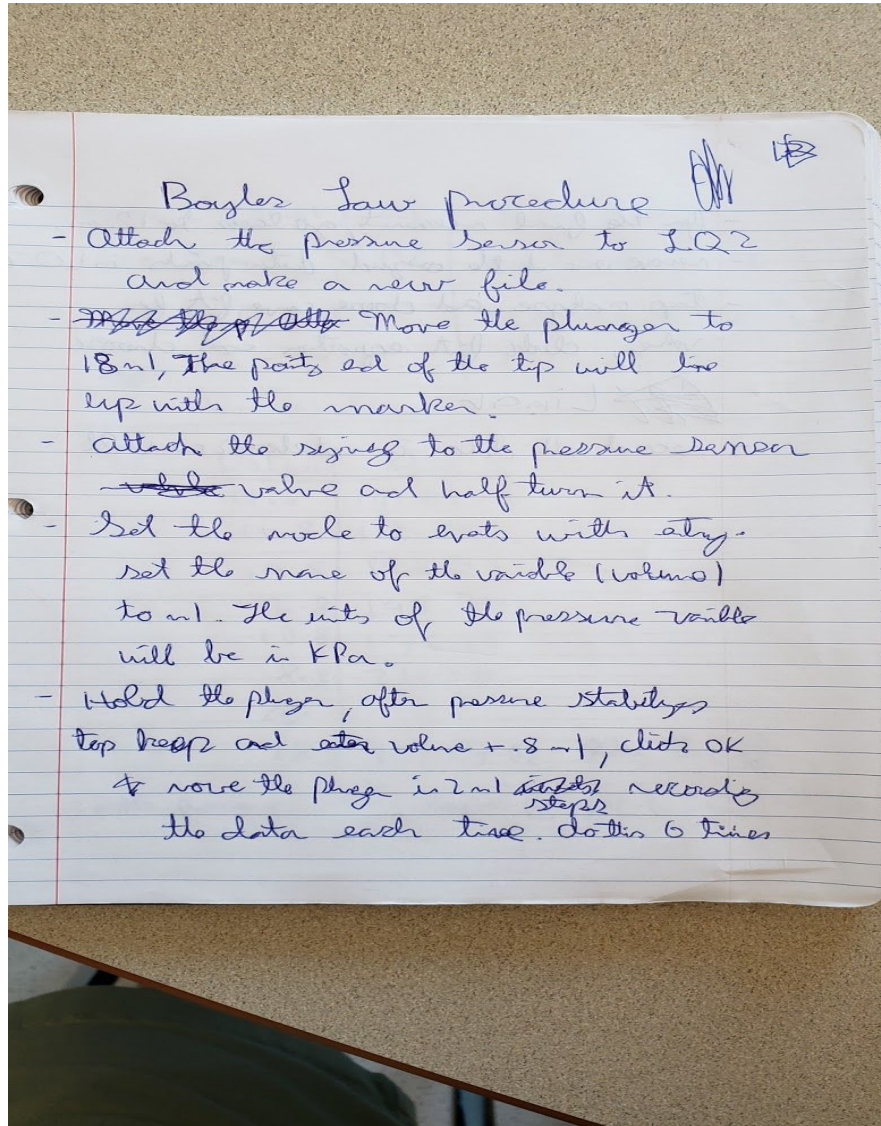 Boyles Law procedure
- Attach the pressure sensor to LQ2
and make a new file.
- Move the plunger to
18 ml, The pointy end of the tip will line
up with the marker.
- attach the syring to the pressure sensor
valve and half turn it.
- Set the mode to evets with etry.
set the name of the varible (volume)
to ml. The units of the pressure varible
will be in KPa.
- Hold the pluger, after pressure stabilizes
tap keep and enter volume + .8 ml, click OK
& move the pluger in 2 ml steps recording
the data each time. do this 6 times